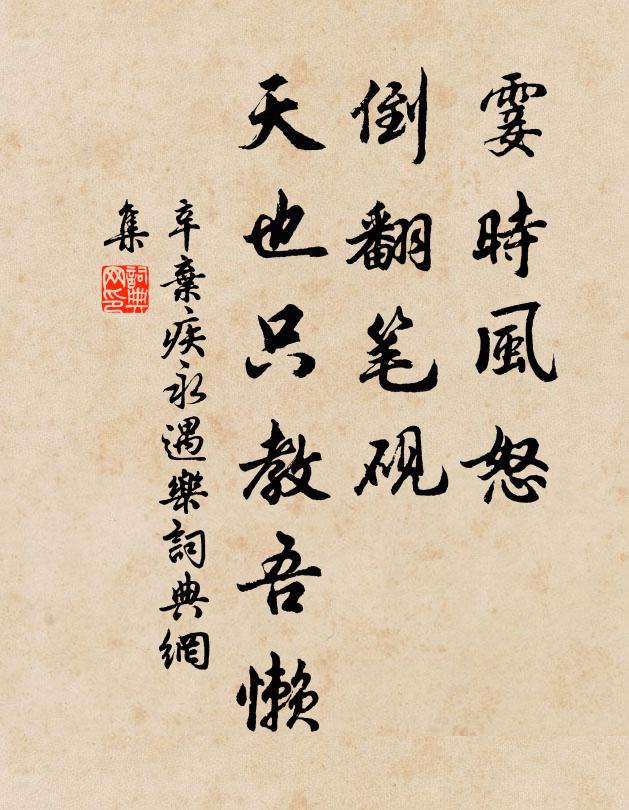 霎時風怒
倒翻笔硯
天也只教吾懒
辛棄疾永遇樂詞典網
集
詞典
网印